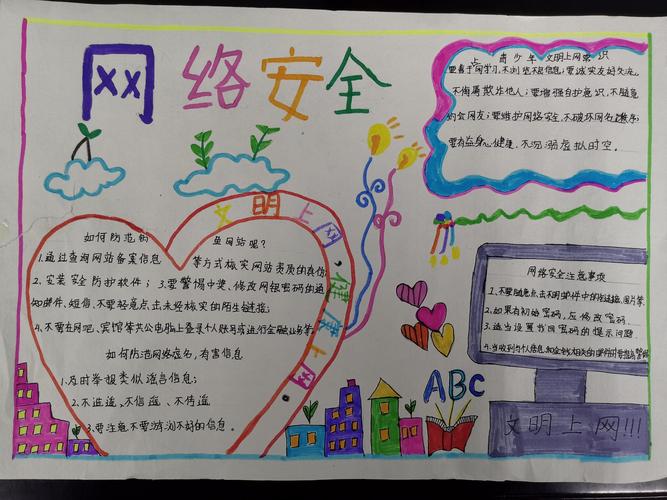 网络安全
青少年文明上网常识
要善于网学习,不浏览不良信息;要诚实友好交流,
不侮辱欺诈他人;要增强自护意识,不随意
约会网友;要维护网络安全,不破坏网络秩序;
要有益身心健康,不沉溺虚拟时空。
文明上网,健康上网
如何防范钓鱼网站呢?
1.通过查询网站备案信息等方式核实网站资质的真伪
2.安装安全防护软件;3.要警惕中奖、修改网银密码的通
知邮件、短信,不要轻意点击未经核实的陌生链接;
4.不要在网吧、宾馆等公共电脑上登录个人账号或进行金融业务等。
如何防范网络虚假,有害信息
1.及时举报类似谣言信息;
2.不造谣、不信谣、不传谣
3.要注意不要浏览不好的信息。
网络安全注意事项
1.不要随意点击不明邮件中的链接、图片等
2.如果有初始密码,应修改密码.
3.适当设置找回密码的提示问题.
4.当收到与个人信息
ABC
文明上网!!!